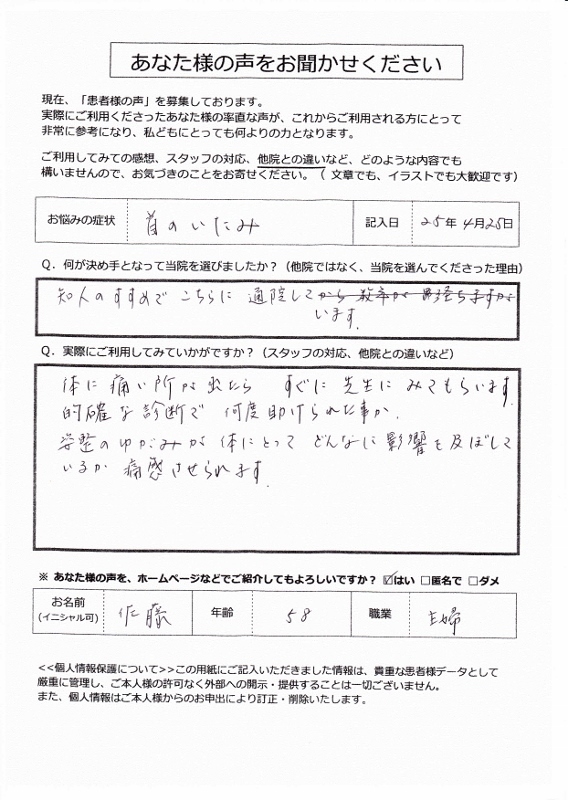 あなた様の声をお聞かせください
現在、「患者様の声」を募集しております。
実際にご利用くださったあなた様の率直な声が、これからご利用される方にとって
非常に参考になり、私どもにとっても何よりの力となります。
ご利用してみての感想、スタッフの対応、他院との違いなど、どのような内容でも
構いませんので、お気づきのことをお寄せください。（ 文章でも、イラストでも大歓迎です）
お悩みの症状 首のいたみ 記入日 25年 4月25日
Q．何が決め手となって当院を選びましたか？（他院ではなく、当院を選んでくださった理由）
知人のすすめで こちらに 通院して
います.
Q．実際にご利用してみていかがですか？（スタッフの対応、他院との違いなど）
体に 痛い所が出たら すぐに 先生に みてもらいます.
的確な診断で 何度助けられた事か.
姿整のゆがみが 体にとって どんなに 影響を及ぼして
いるか 痛感させられます.
※ あなた様の声を、ホームページなどでご紹介してもよろしいですか？ ☑はい □匿名で □ダメ
お名前
(イニシャル可) 佐藤 年齢 58 職業 主婦
<<個人情報保護について>>この用紙にご記入いただきました情報は、貴重な患者様データとして
厳重に管理し、ご本人様の許可なく外部への開示・提供することは一切ございません。
また、個人情報はご本人様からのお申出により訂正・削除いたします。